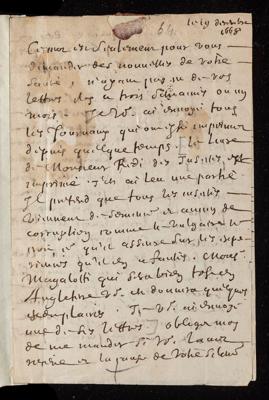 le 19 decembre
1668
64
Ce mot est seulement pour vous
demander des nouvelles de vostre
santé, n'ayant pas eu de vos
lettres des a trois semaines ou un
mois. Je vous ai envoié tous
les Journaux qui ont esté imprimez
depuis quelque temps. Le livre
de Monsieur Redi des Insectes est
imprimé. J'en ai leu une partie
Il pretend que tous les insectes
viennent de semence et non de
corruption comme le vulgaire le
croit et qu'il asseure sur les expe-
riences qu'il en a faites. Monsr
Magalotti qui sera bien tost en
Angleterre vous en donnera quelques
exemplaires. Je vous ai envoié
une de ses lettres. obligez moi
de me mander si vous l'avez
receue et la grace de vostre